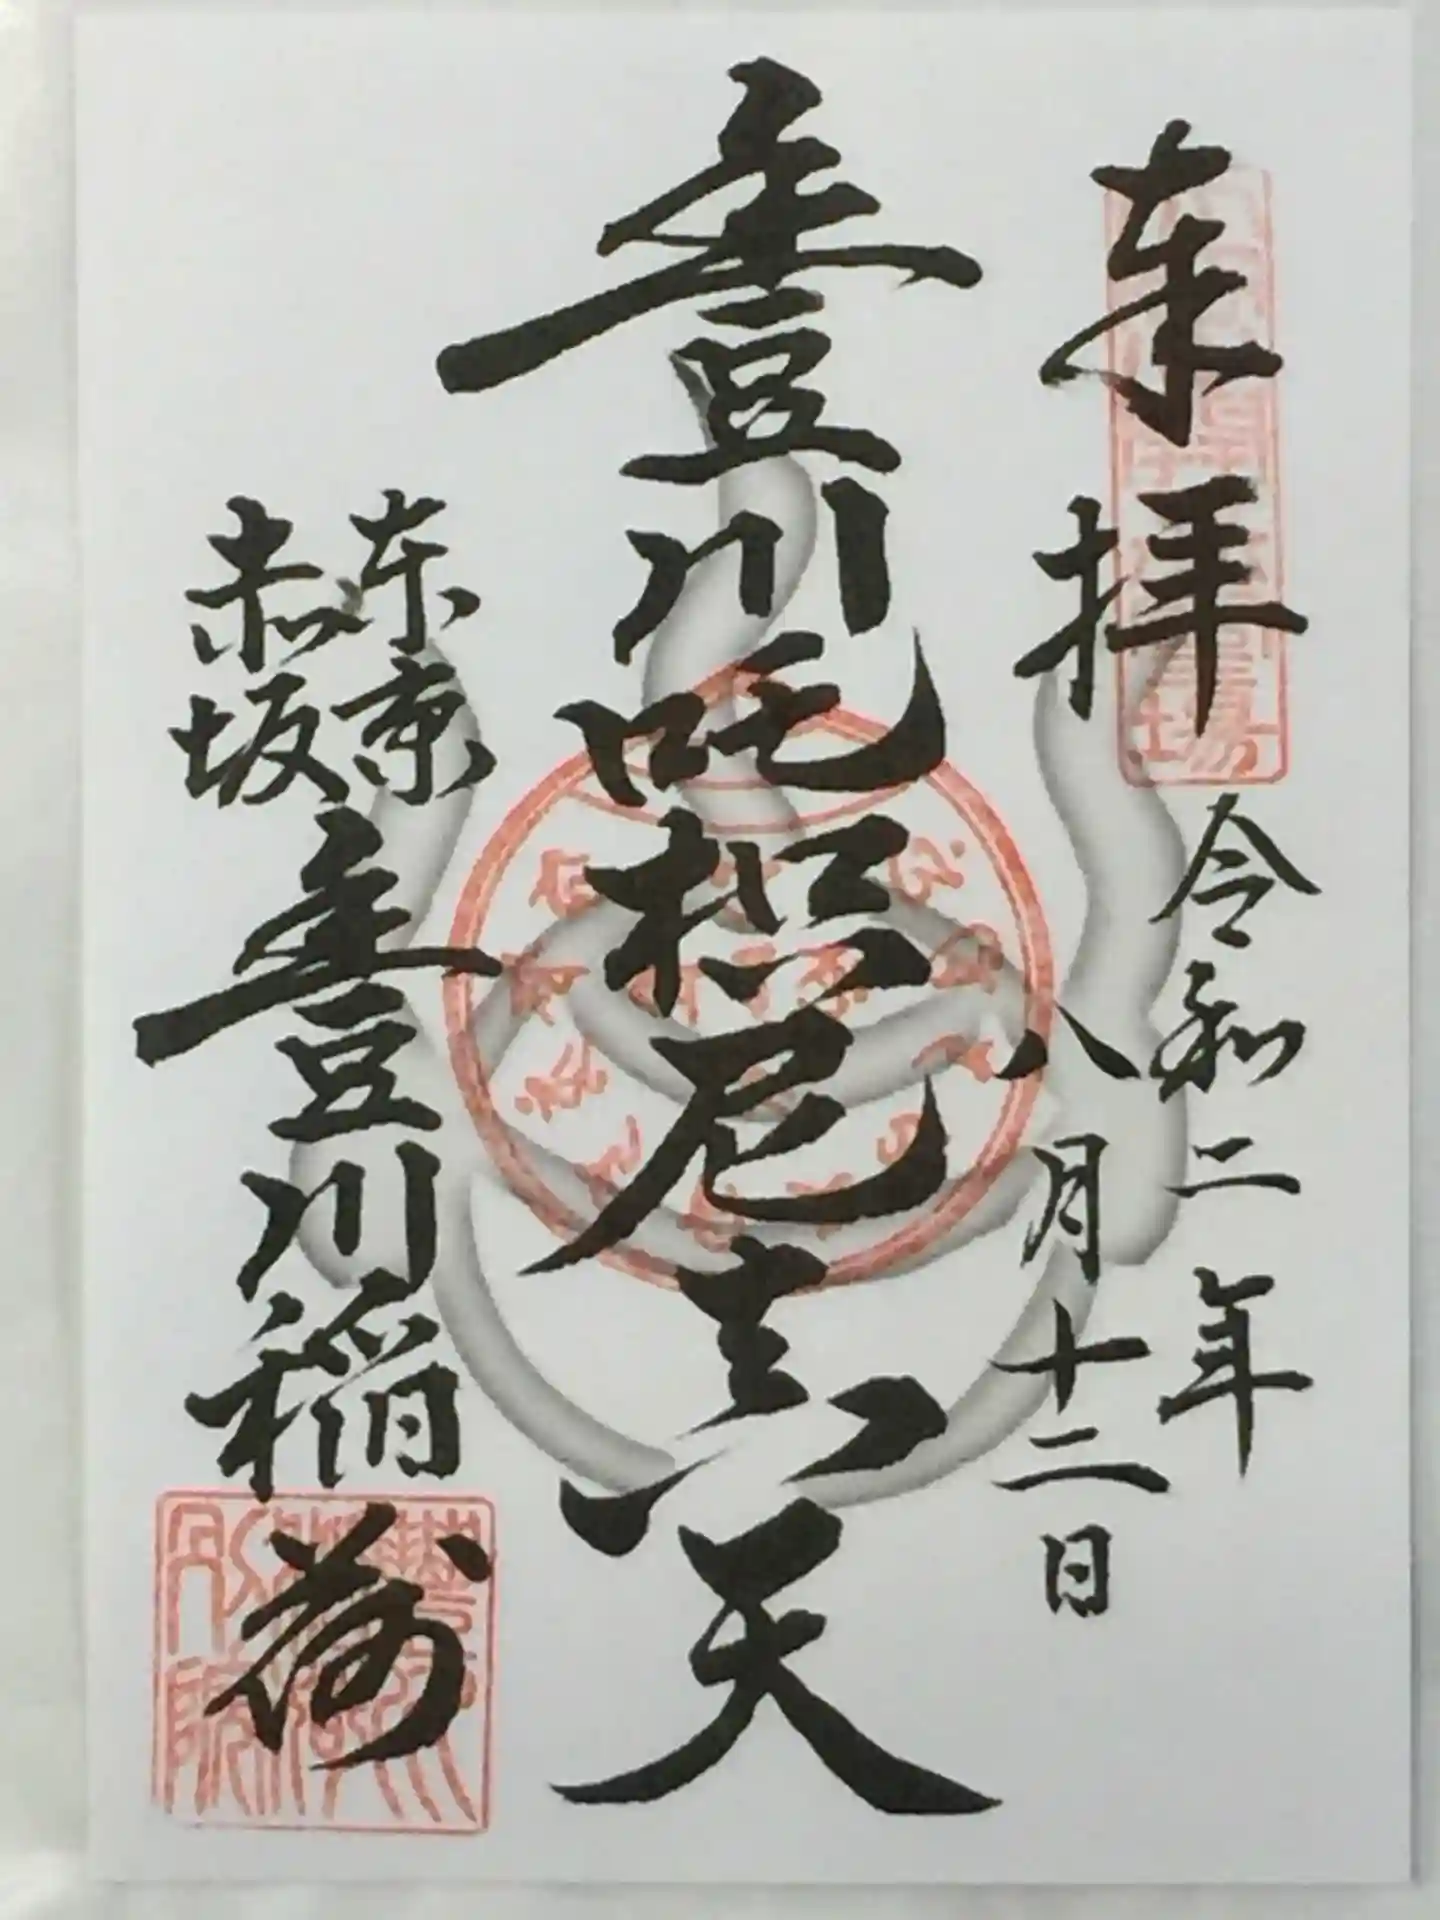 来拝
令和二年
八月十二日
豊川吒枳尼真天
東京
赤坂
豊川稲荷